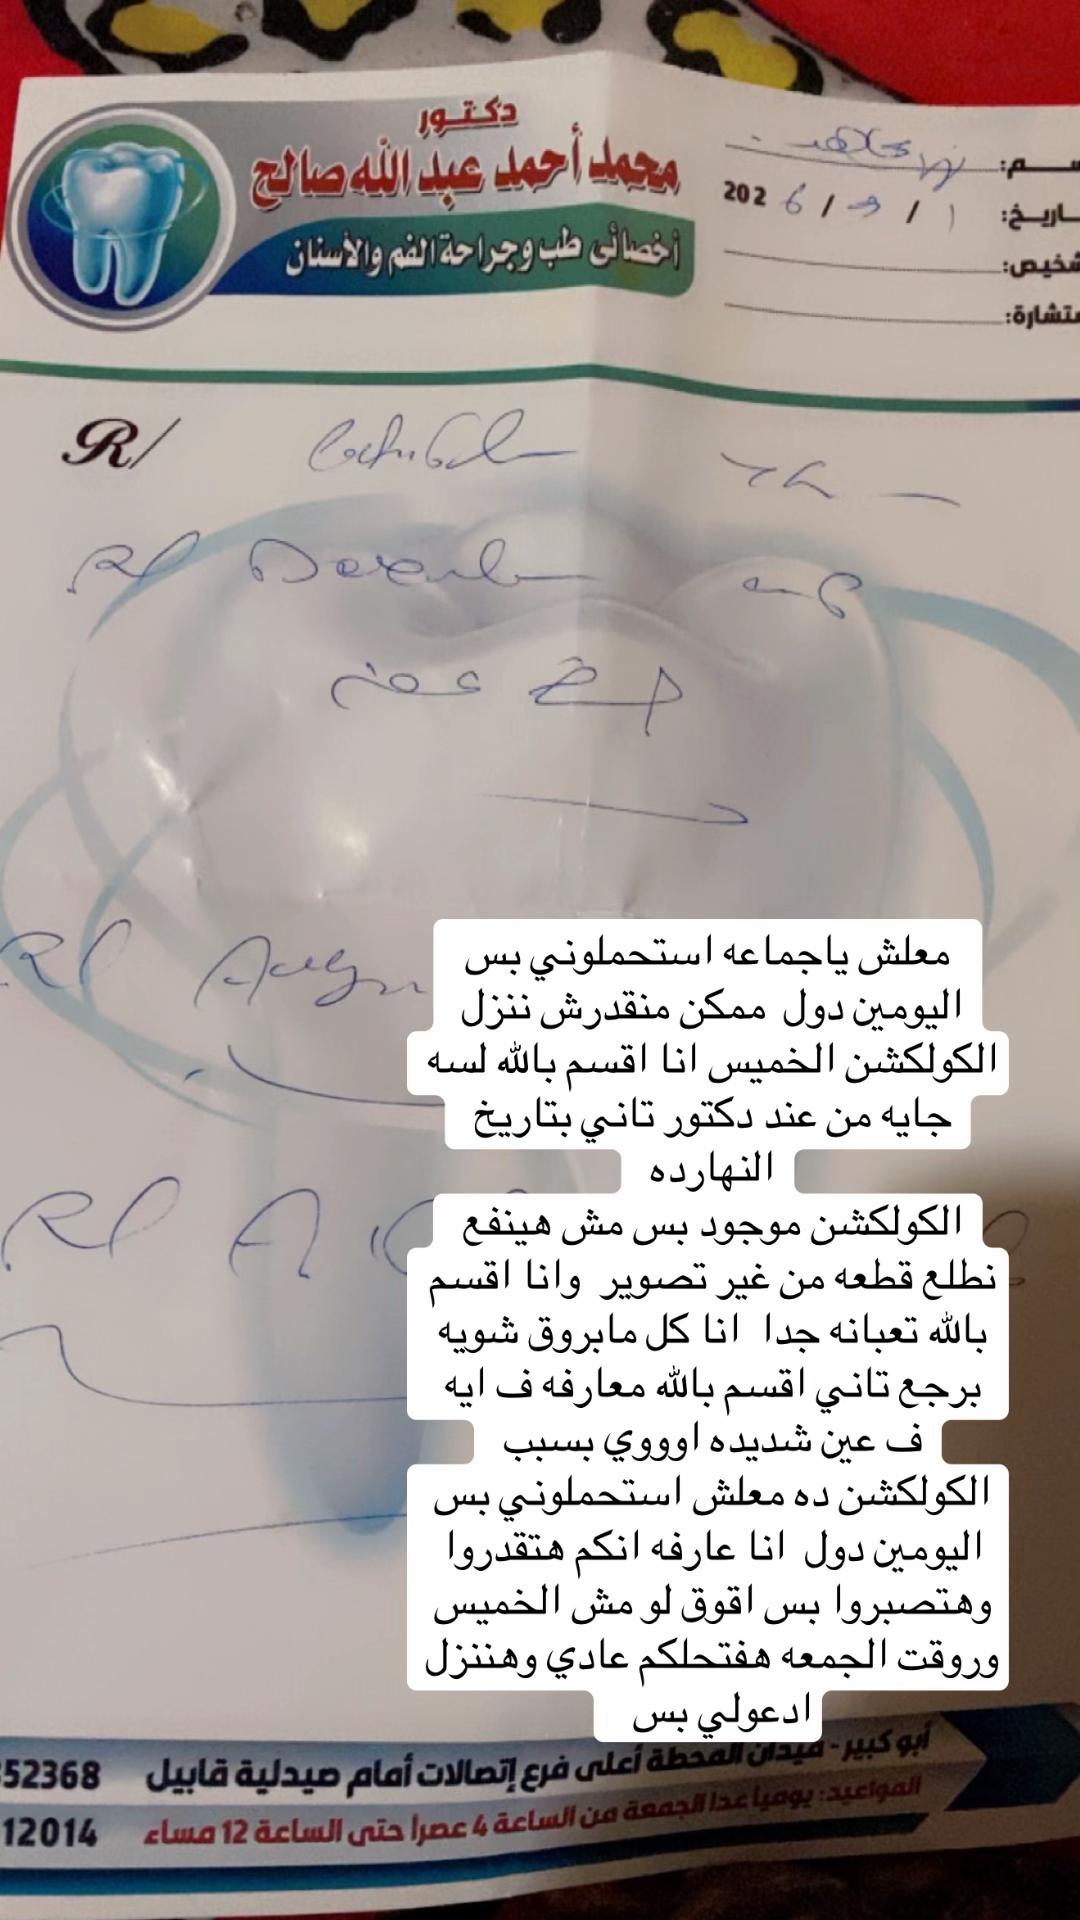 دكتور
محمد أحمد عبد الله صالح
أخصائى طب وجراحة الفم والأسنان
ـسـم:
ـاريـخ: 1 / 9 / 2026
ـشخيص:
ـتشارة:
R/
Rl
حقن عضل
Rl Aug
Rl A
معلش ياجماعه استحملوني بس
اليومين دول ممكن منقدرش ننزل
الكولكشن الخميس انا اقسم بالله لسه
جايه من عند دكتور تاني بتاريخ
النهارده
الكولكشن موجود بس مش هينفع
نطلع قطعه من غير تصوير وانا اقسم
بالله تعبانه جدا انا كل مابروق شويه
برجع تاني اقسم بالله معارفه ف ايه
ف عين شديده اوووي بسبب
الكولكشن ده معلش استحملوني بس
اليومين دول انا عارفه انكم هتقدروا
وهتصبروا بس اقوق لو مش الخميس
وروقت الجمعه هفتحلكم عادي وهننزل
ادعولي بس
أبو كبير - ميدان المحطة أعلى فرع إتصالات أمام صيدلية قابيل 52368
المواعيد: يومياً عدا الجمعة من الساعة 4 عصراً حتى الساعة 12 مساء 12014